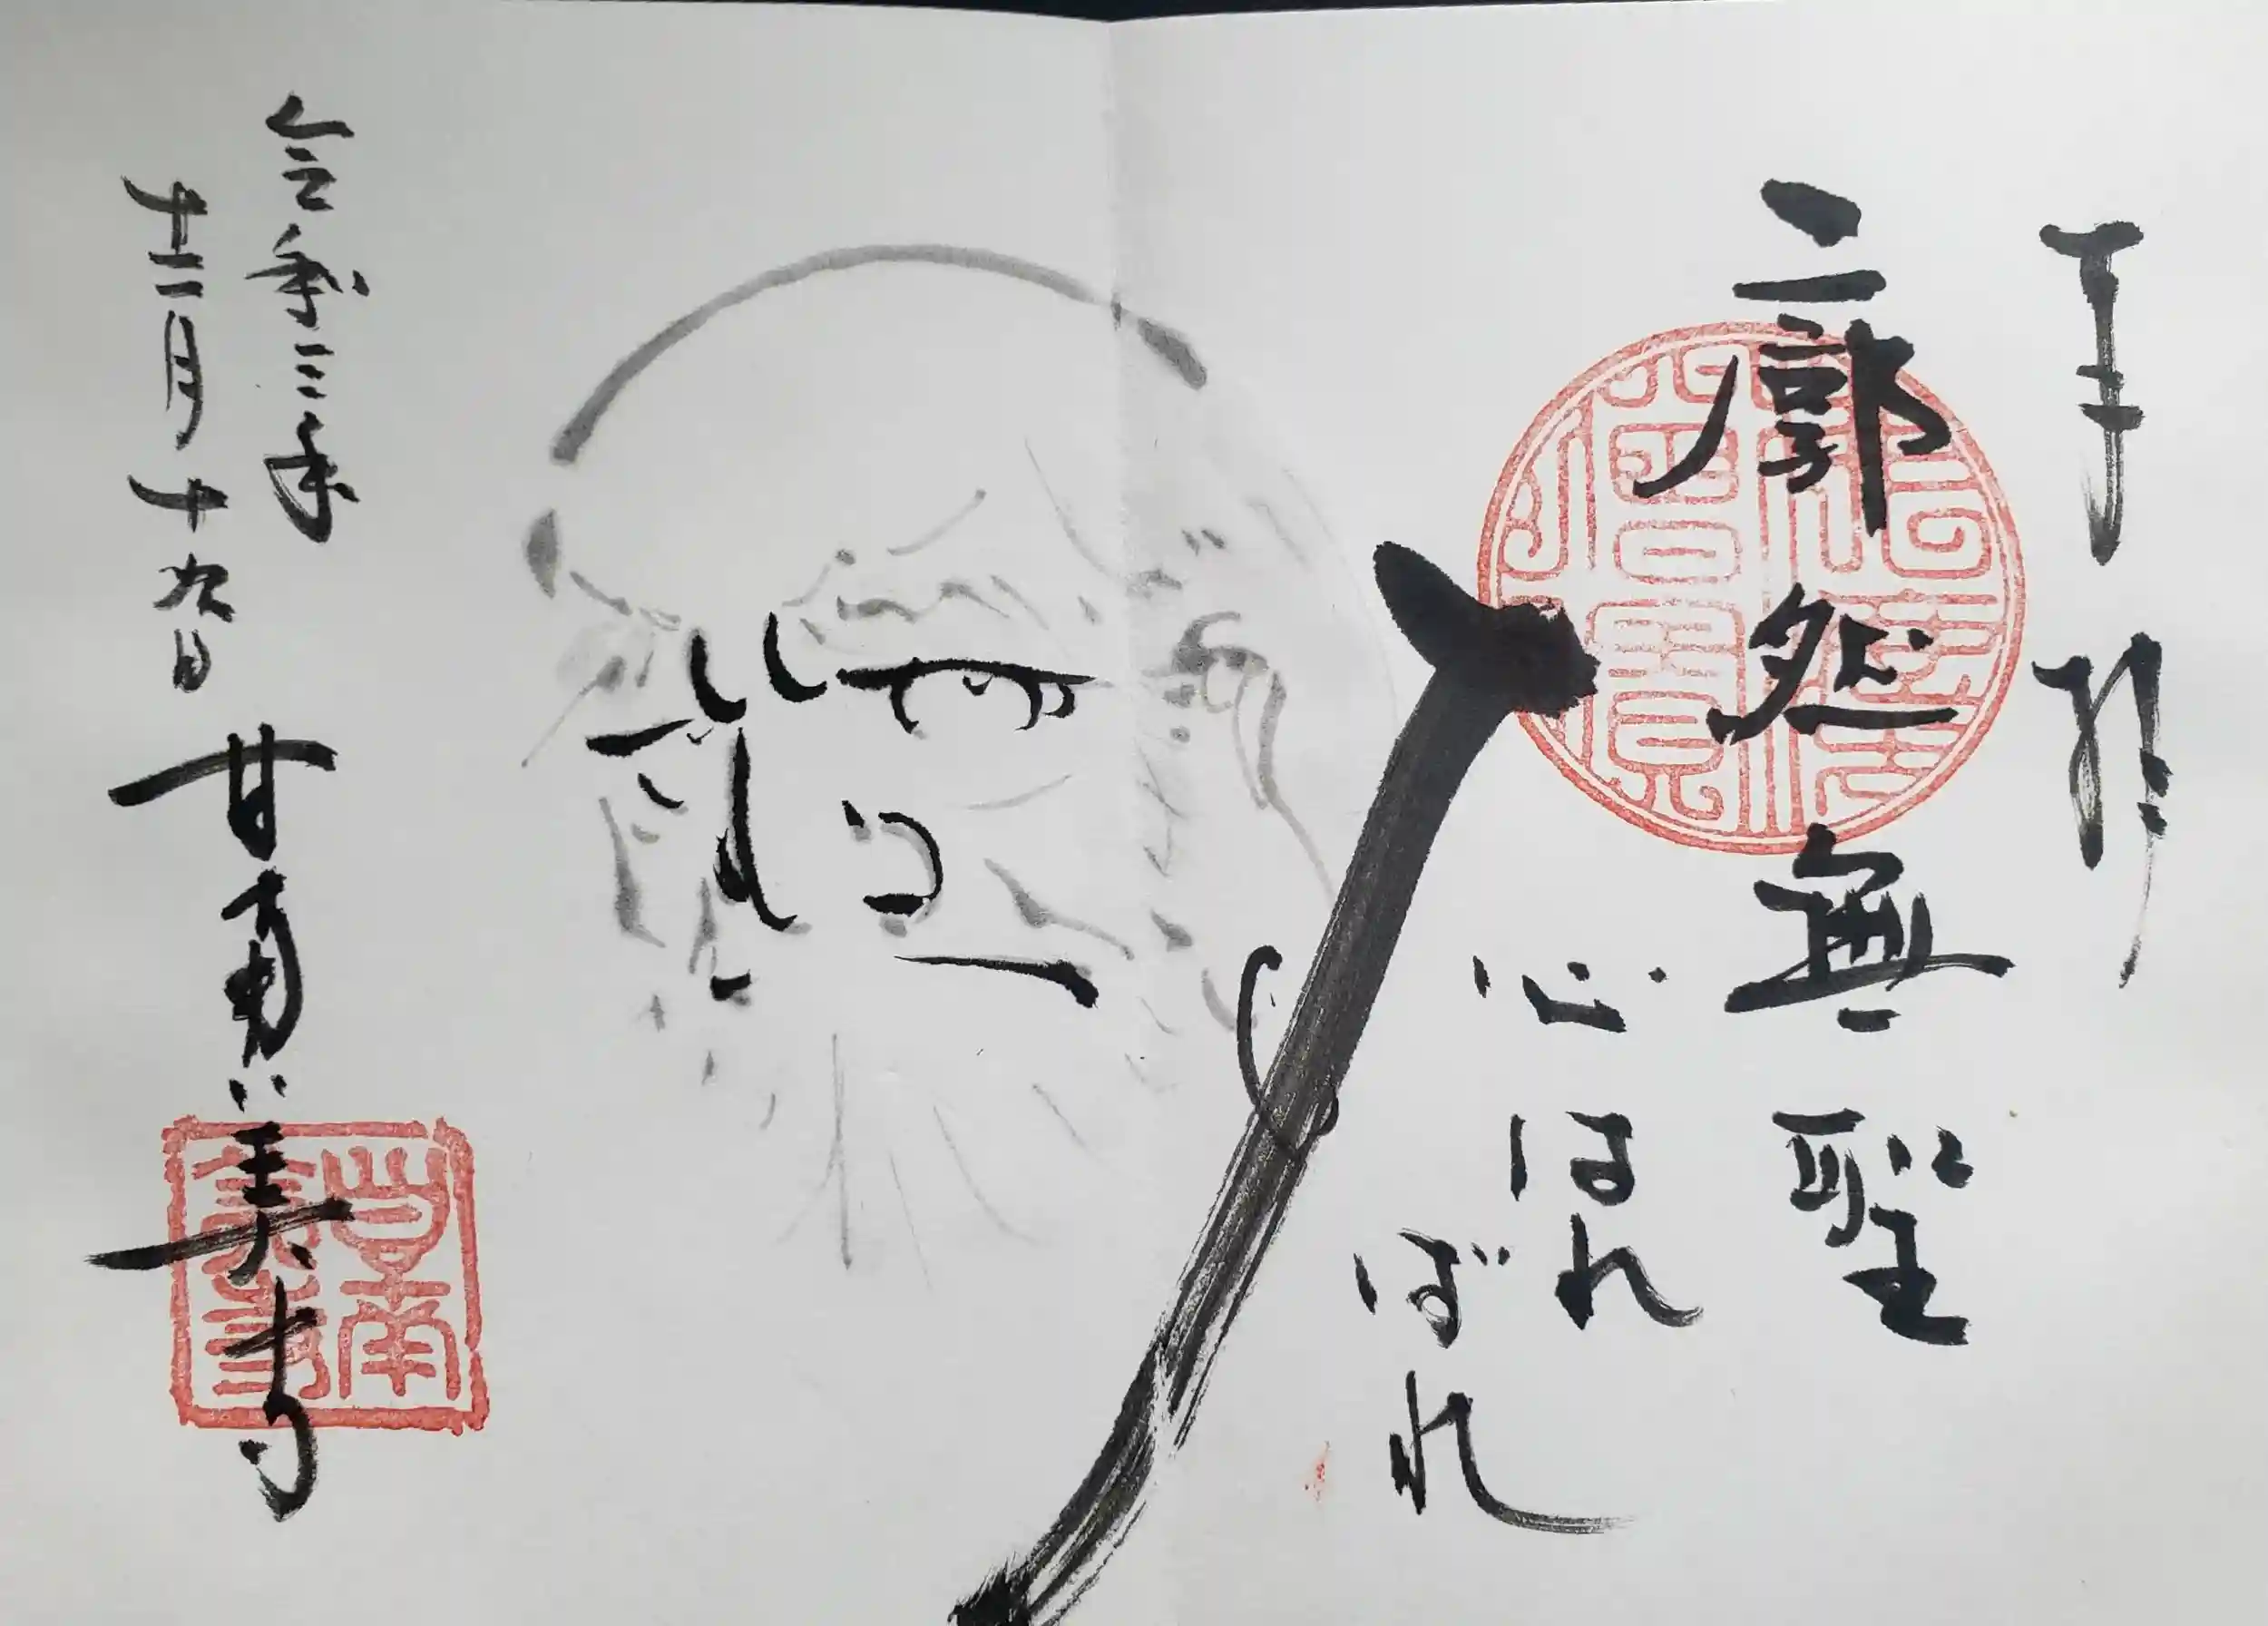 奉拝
廓然無聖
心はれ
ばれ
令和三年
十二月十九日
甘南美寺
佛法僧寳
甘南美寺